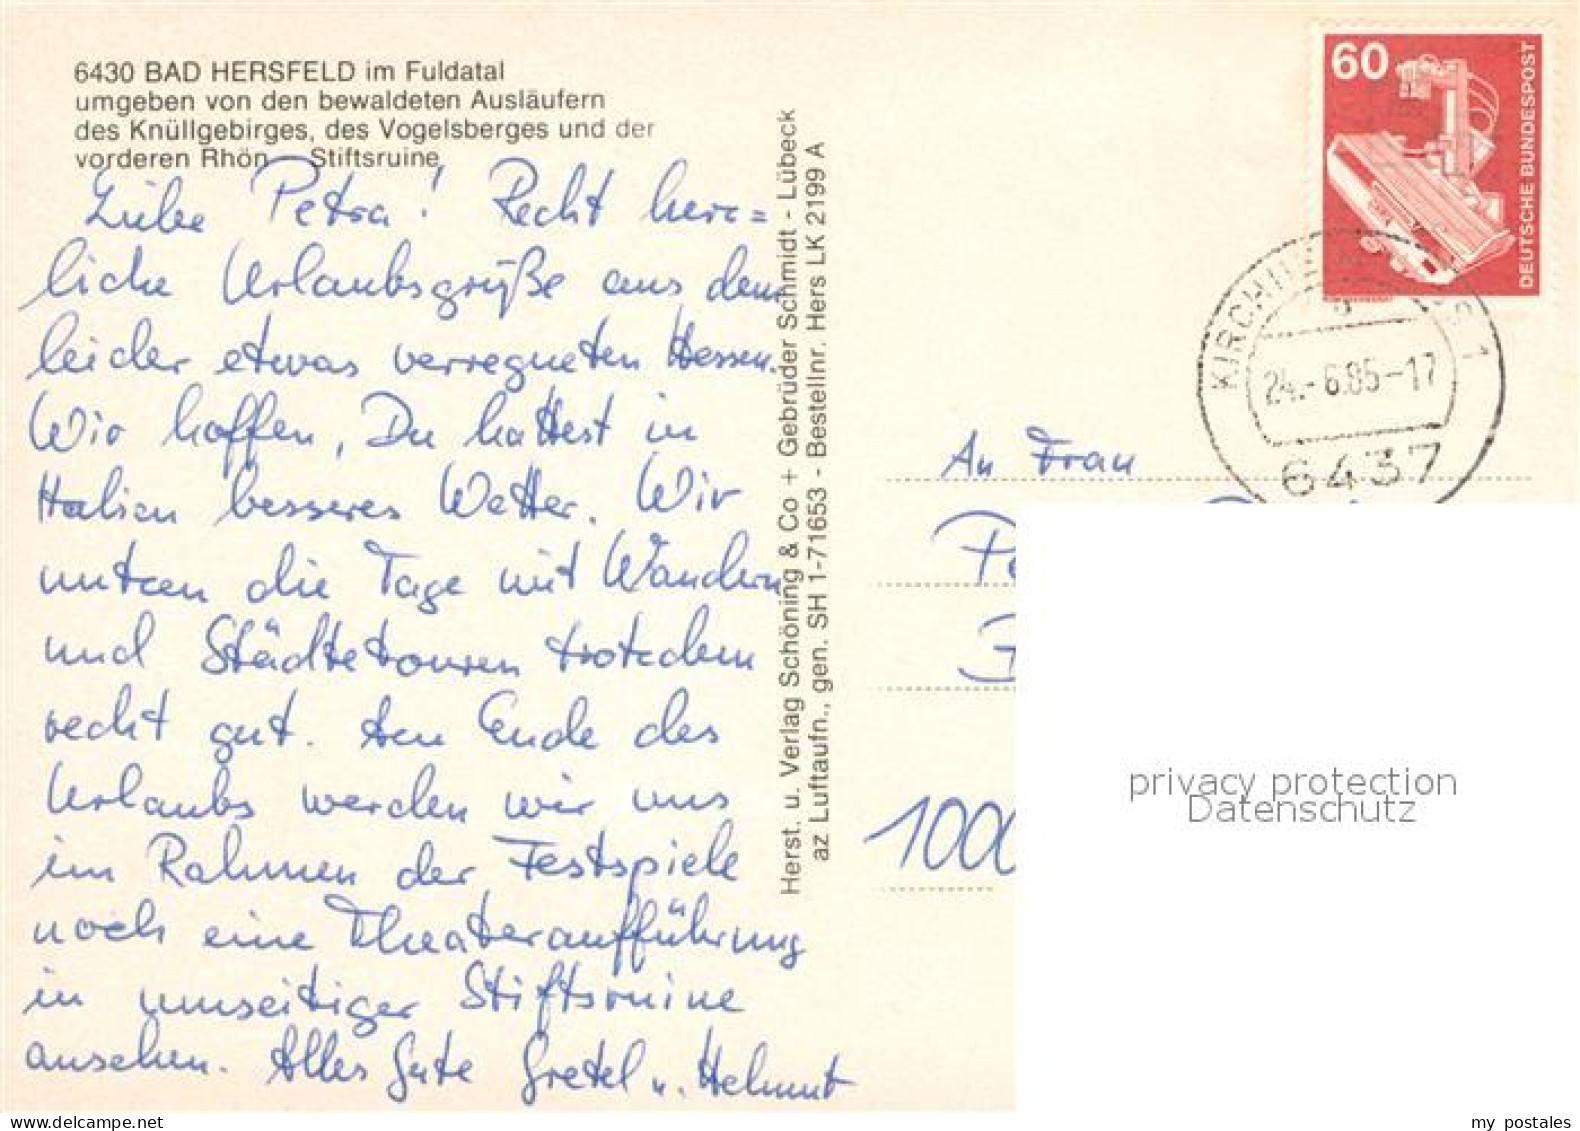 6430 BAD HERSFELD im Fuldatal
umgeben von den bewaldeten Ausläufern
des Knüllgebirges, des Vogelsberges und der
vorderen Rhön Stiftsruine
Liebe Petra! Recht herz=
liche Urlaubsgrüße aus dem
leider etwas verregneten Hessen.
Wir hoffen, Du hattest in
Italien besseres Wetter. Wir
nutzen die Tage mit Wandern
und Städtetouren trotzdem
recht gut. Am Ende des
Urlaubs werden wir uns
im Rahmen der Festspiele
noch eine Theateraufführung
in umseitiger Stiftsruine
ansehen. Alles Gute Gretel u. Helmut
Herst. u. Verlag Schöning & Co + Gebrüder Schmidt - Lübeck
az Luftaufn., gen. SH 1-71653 - Bestellnr. Hers LK 2199 A
60
DEUTSCHE BUNDESPOST
24.-6.85-17
6437
An Frau
1000
privacy protection
Datenschutz
my postales